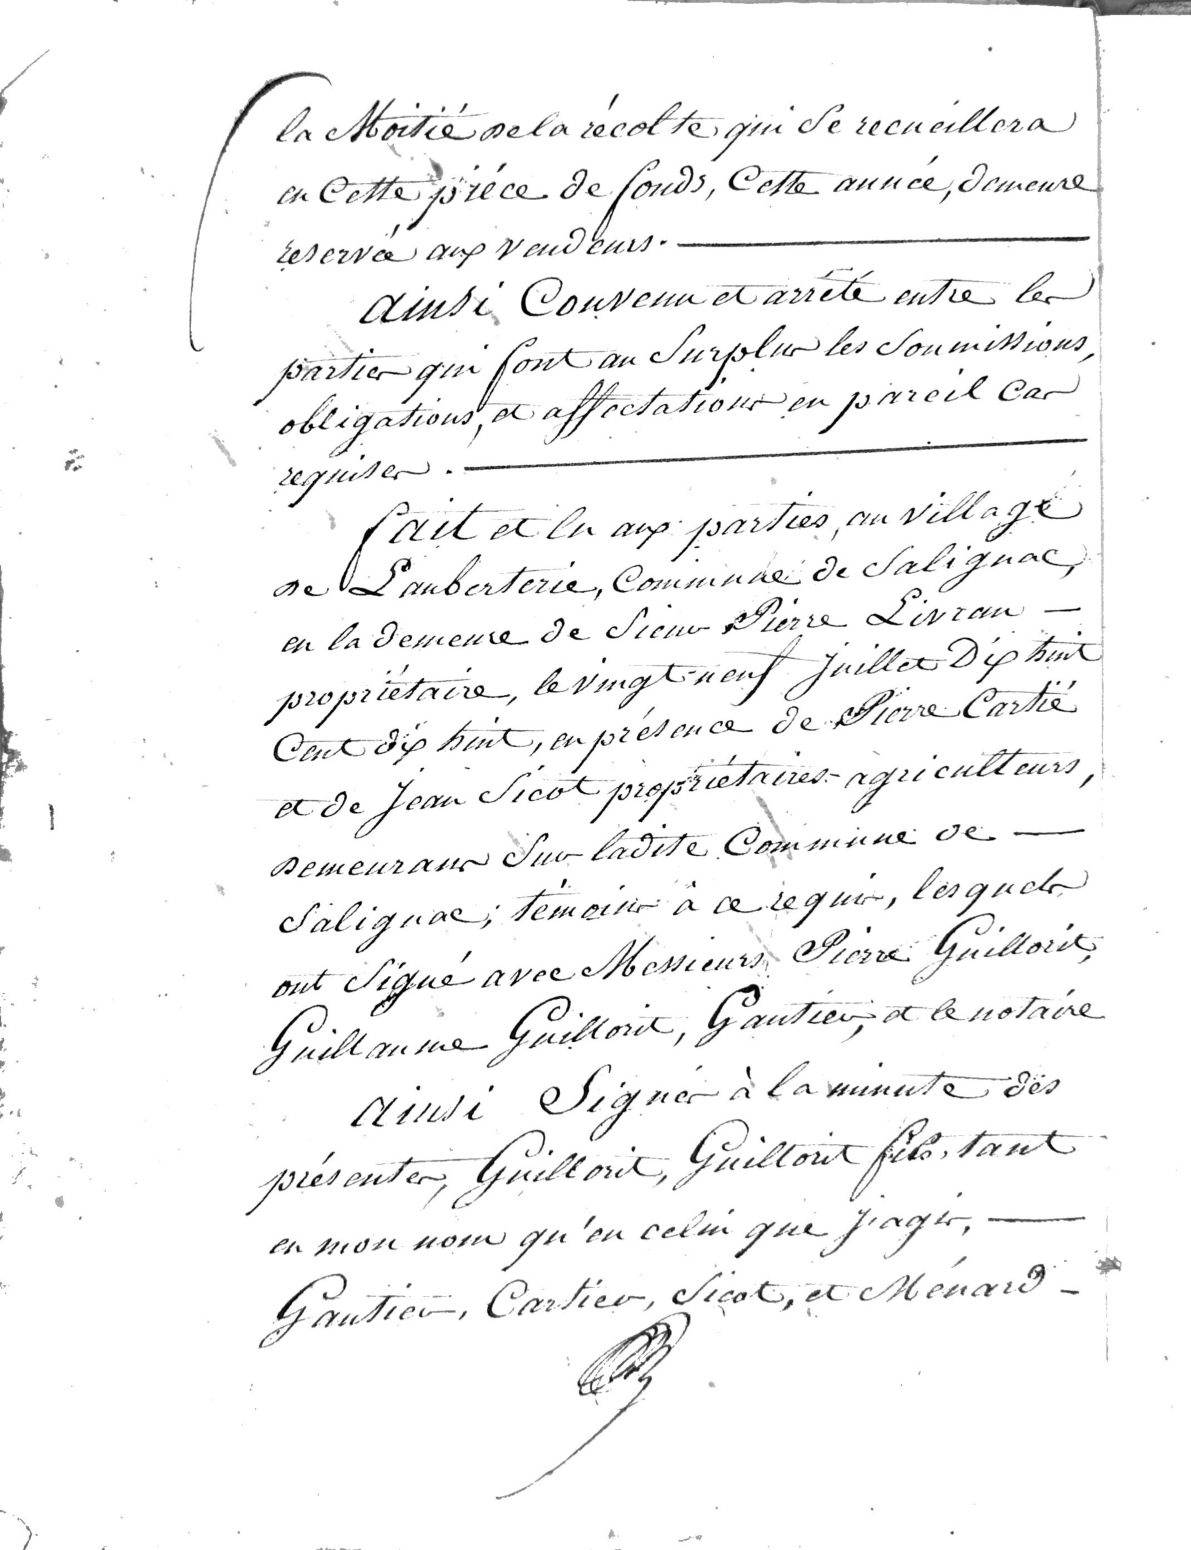 la Moitié de la récolte qui se recueillera
en Cette piéce de fonds, Cette année, demeure
reservée aux vendeurs.
Ainsi Convenu et arrété entre les
parties qui font au surplus les soumissions,
obligations, et affectations en pareil Cas
requises.
fait et lu aux parties, au village
de Lauberterie, Commune de Salignac,
en la demeure de Sieur Pierre Livran
propriétaire, le vingt-neuf Juillet Dix huit
Cent dix huit, en présence de Pierre Cartié
et de Jean Sicot propriétaires-agriculteurs,
demeurans Sur ladite Commune de
Salignac; témoins à ce requis, lesquels
ont Signé avec Messieurs Pierre Guillorit,
Guillaume Guillorit, Gautier, et le notaire
Ainsi Signés à la minute des
présentes, Guillorit, Guillorit fils, tant
en mon nom qu'en celui que j'agis,
Gautier, Cartier, Sicot, et Ménard